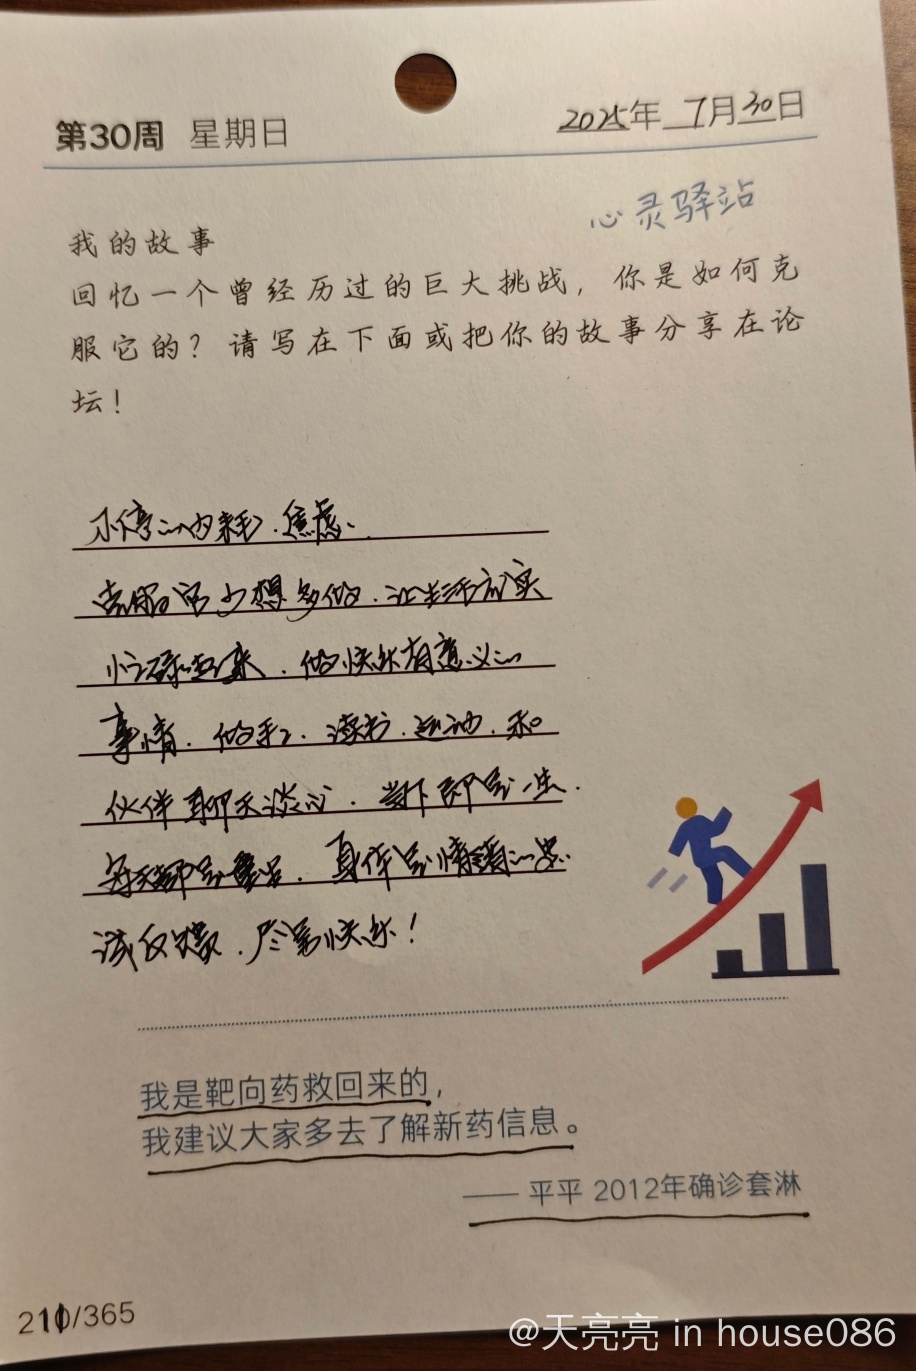 第30周 星期日
2025年 7月30日
心灵驿站
我的故事
回忆一个曾经历过的巨大挑战，你是如何克
服它的？请写在下面或把你的故事分享在论
坛！
不停的内耗.焦虑、
克服它少想多做.让生活充实
忙碌起来.做快乐有意义的
事情.做手工.读书.运动.和
伙伴聊天谈心.当下即是一生.
每天都是 .身体是情绪的忠
诚反映.尽享快乐！
我是靶向药救回来的，
我建议大家多去了解新药信息。
—— 平平 2012年确诊套淋
/365
@天亮亮 in house086